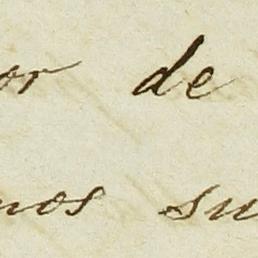 or de
nos su